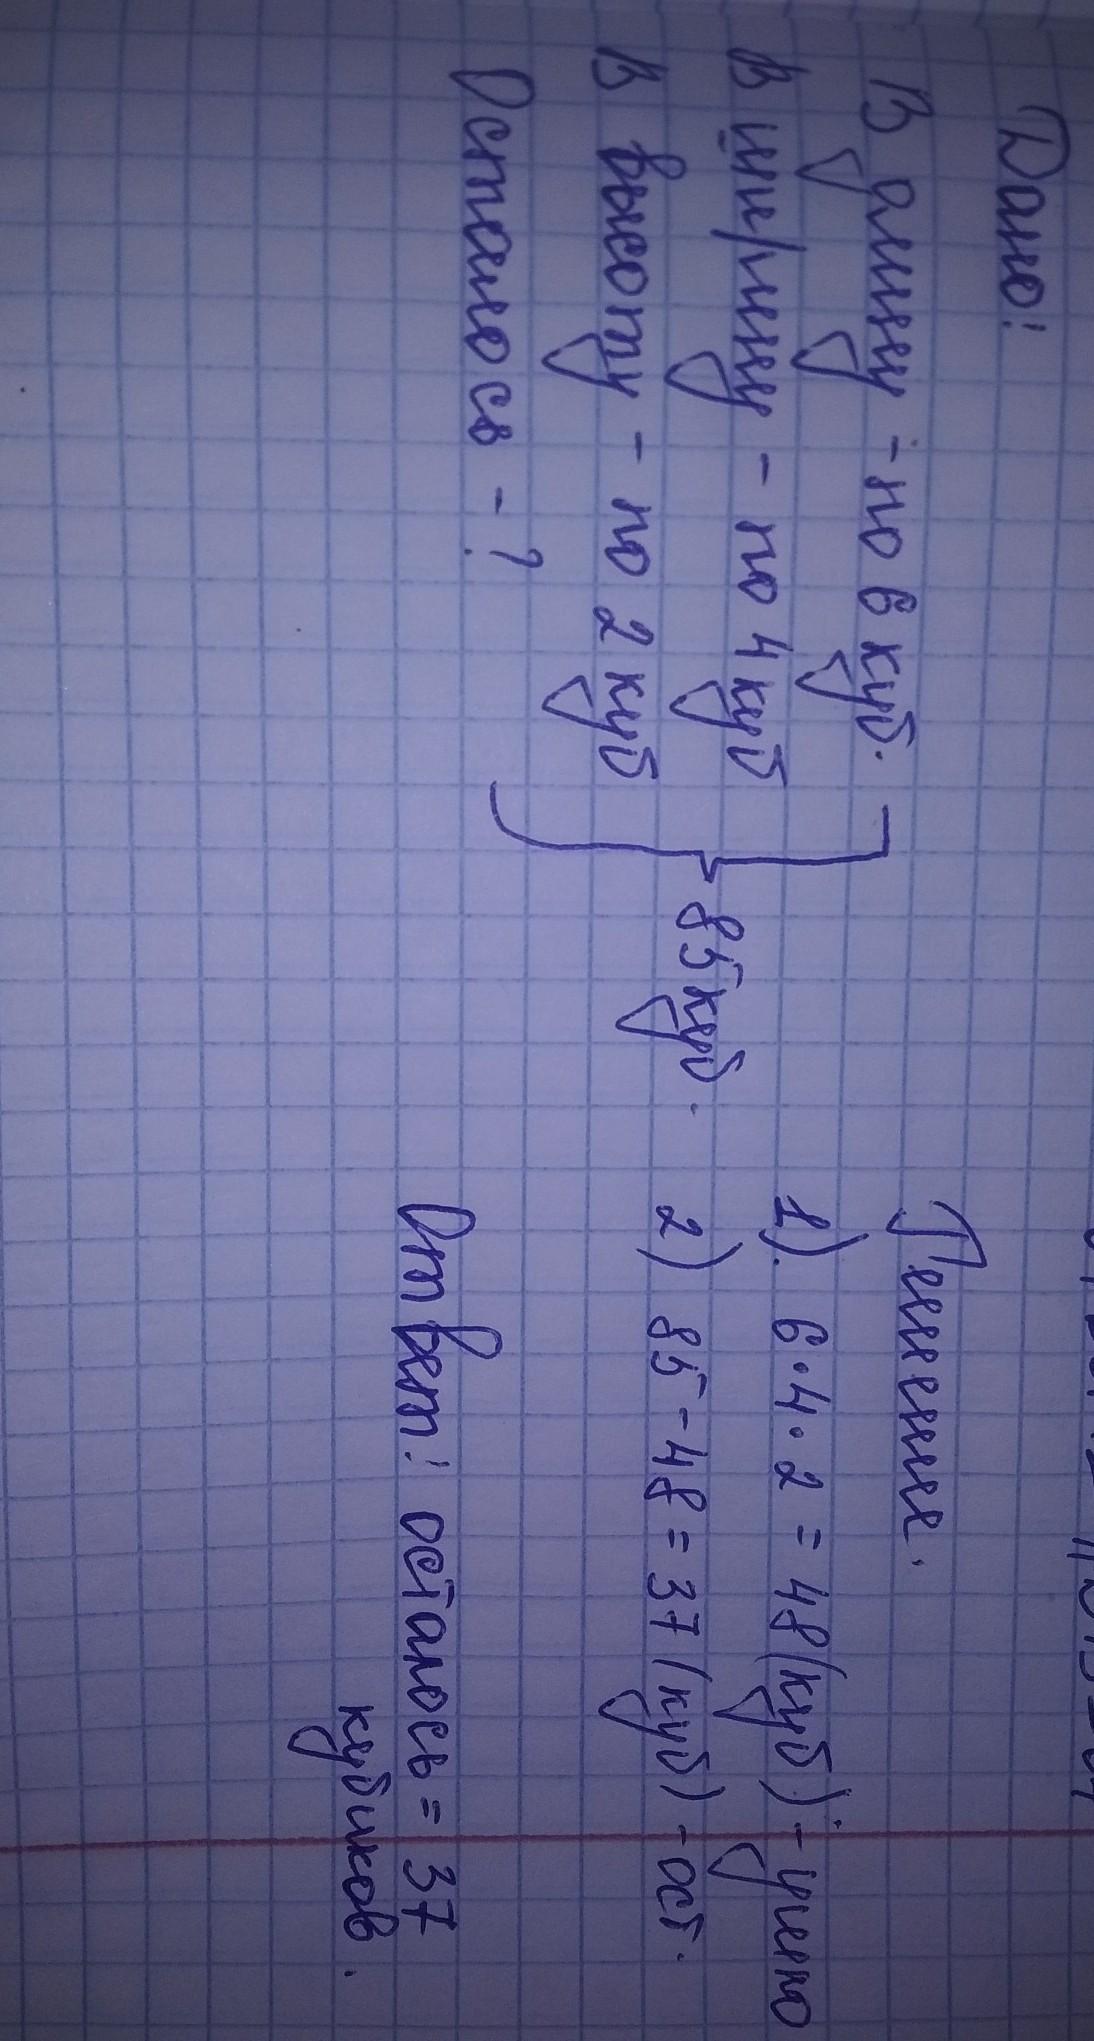 Дано:
В длину - по 6 куб.
В ширину - по 4 куб
В высоту - по 2 куб
85 куб.
Осталось - ?
Решение.
1). 6 · 4 · 2 = 48 (куб) - ушло
2) 85 - 48 = 37 (куб) - ост.
Ответ: осталось = 37
кубиков.